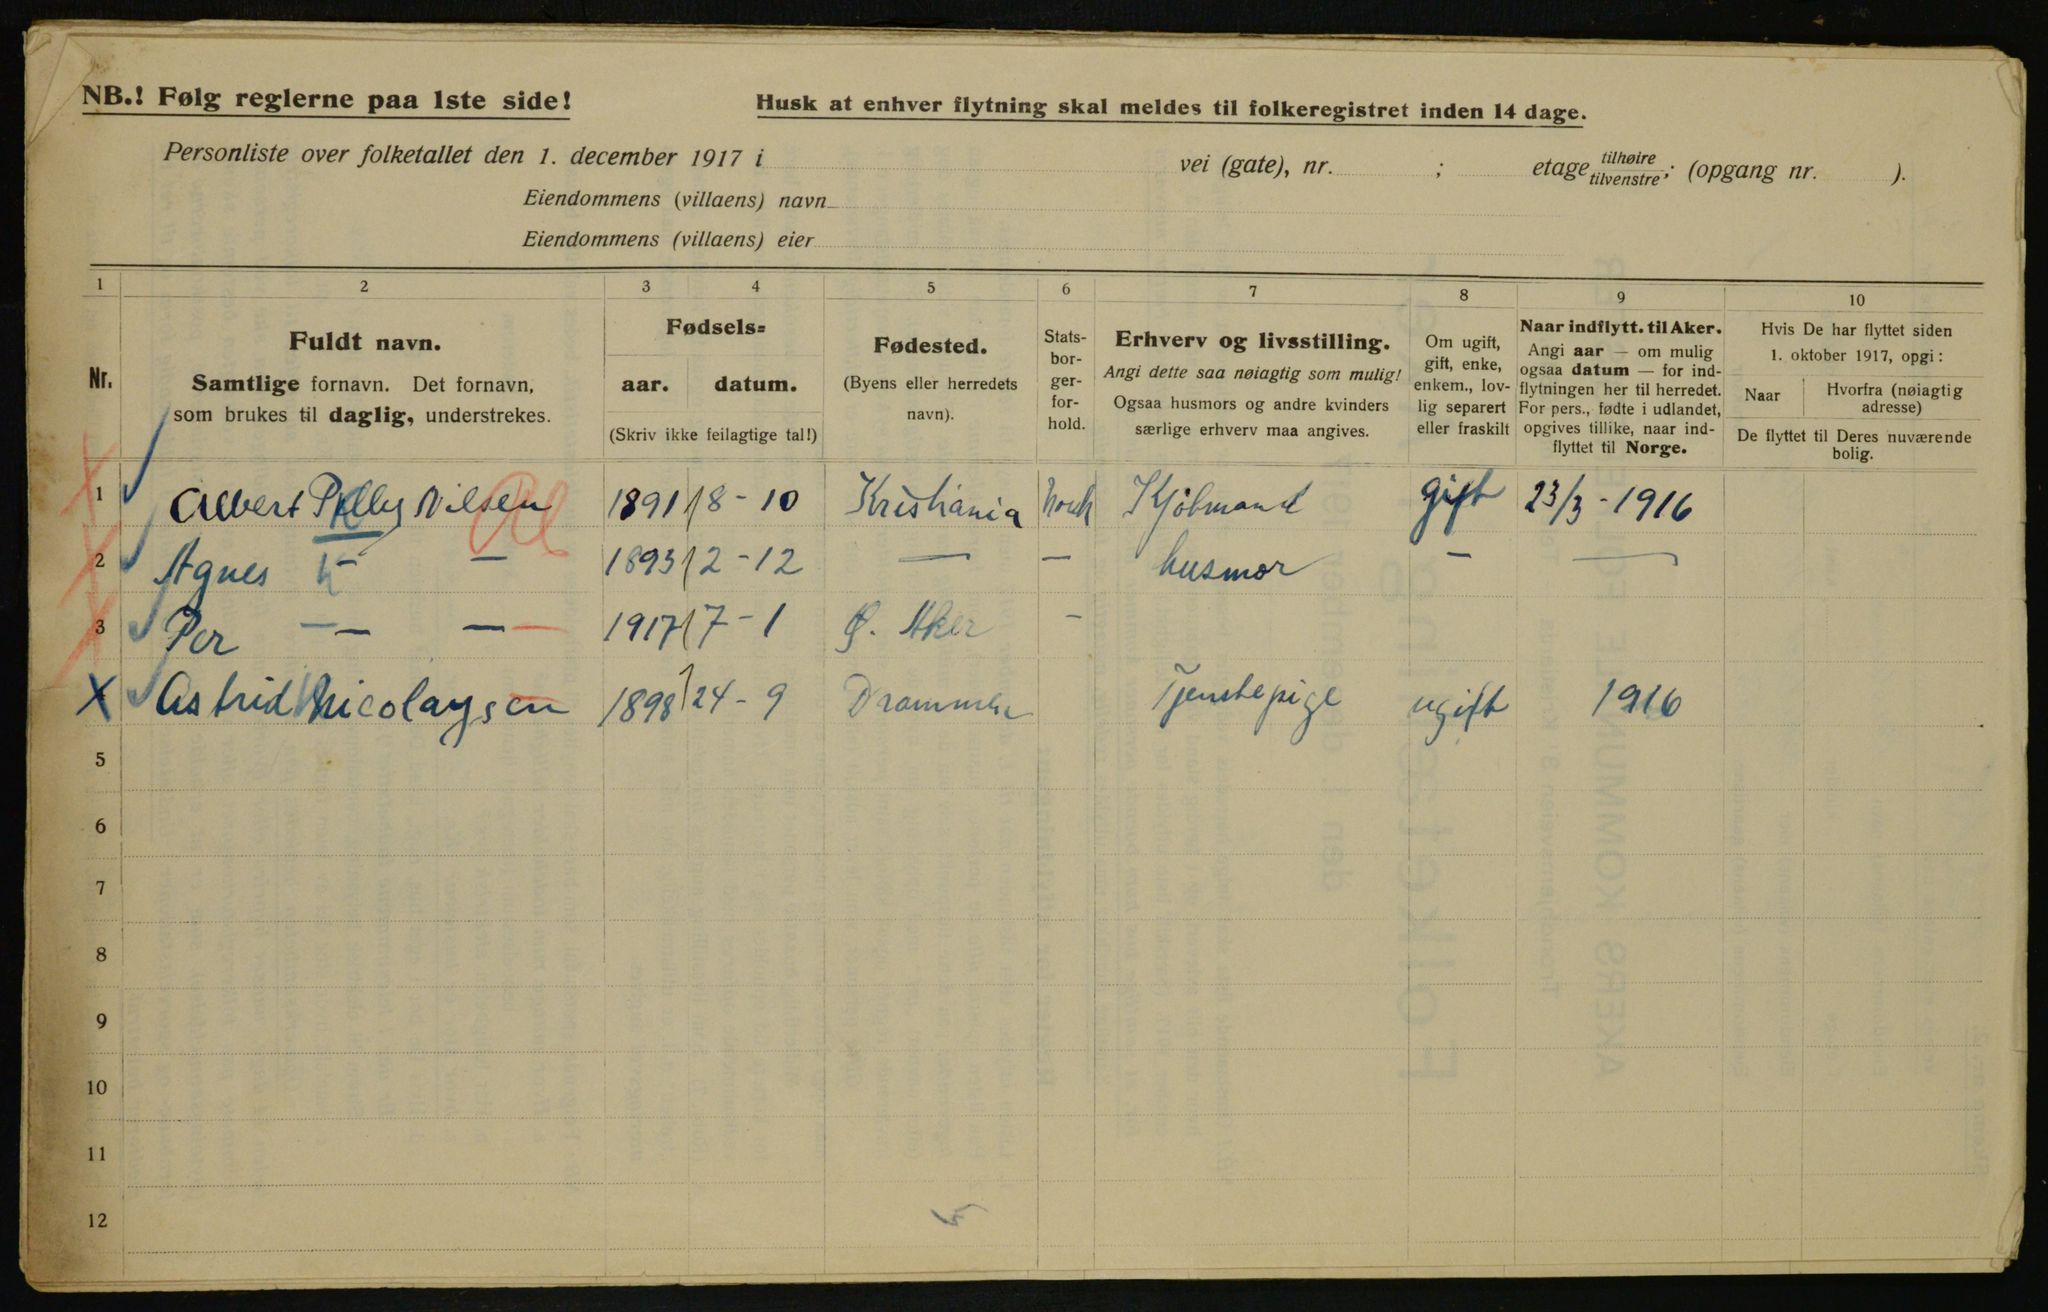 NB.! Følg reglerne paa 1ste side!
Husk at enhver flytning skal meldes til folkeregistret inden 14 dage.
Personliste over folketallet den 1. december 1917 i vei (gate), nr. ; etage tilhøire tilvenstre; (opgang nr. ).
Eiendommens (villaens) navn
Eiendommens (villaens) eier
1 2 3 4 5 6 7 8 9 10
Nr.
Fuldt navn.
Samtlige fornavn. Det fornavn,
som brukes til daglig, understrekes.
Fødsels=
aar. datum.
(Skriv ikke feilagtige tal!)
Fødested.
(Byens eller herredets
navn).
Stats-
bor-
ger-
for-
hold.
Erhverv og livsstilling.
Angi dette saa nøiagtig som mulig!
Ogsaa husmors og andre kvinders
særlige erhverv maa angives.
Om ugift,
gift, enke,
enkem., lov-
lig separert
eller fraskilt
Naar indflytt. til Aker.
Angi aar — om mulig
ogsaa datum — for ind-
flytningen her til herredet.
For pers., fødte i utlandet,
opgives tillike, naar ind-
flyttet til Norge.
Hvis De har flyttet siden
1. oktober 1917, opgi:
Naar
Hvorfra (nøiagtig
adresse)
De flyttet til Deres nuværende
bolig.
1 Albert Nilsen 1891 8 - 10 Kristiania Norsk Kjöbmand gift 23/3 - 1916
2 Agnes — — 1893 2 - 12 — — husmor — —
3 Per — — 1917 7 - 1 Ø. Aker —
Astrid Nicolaysen 1898 24 - 9 Drammen Tjenstepige ugift 1916
5
6
7
8
9
10
11
12